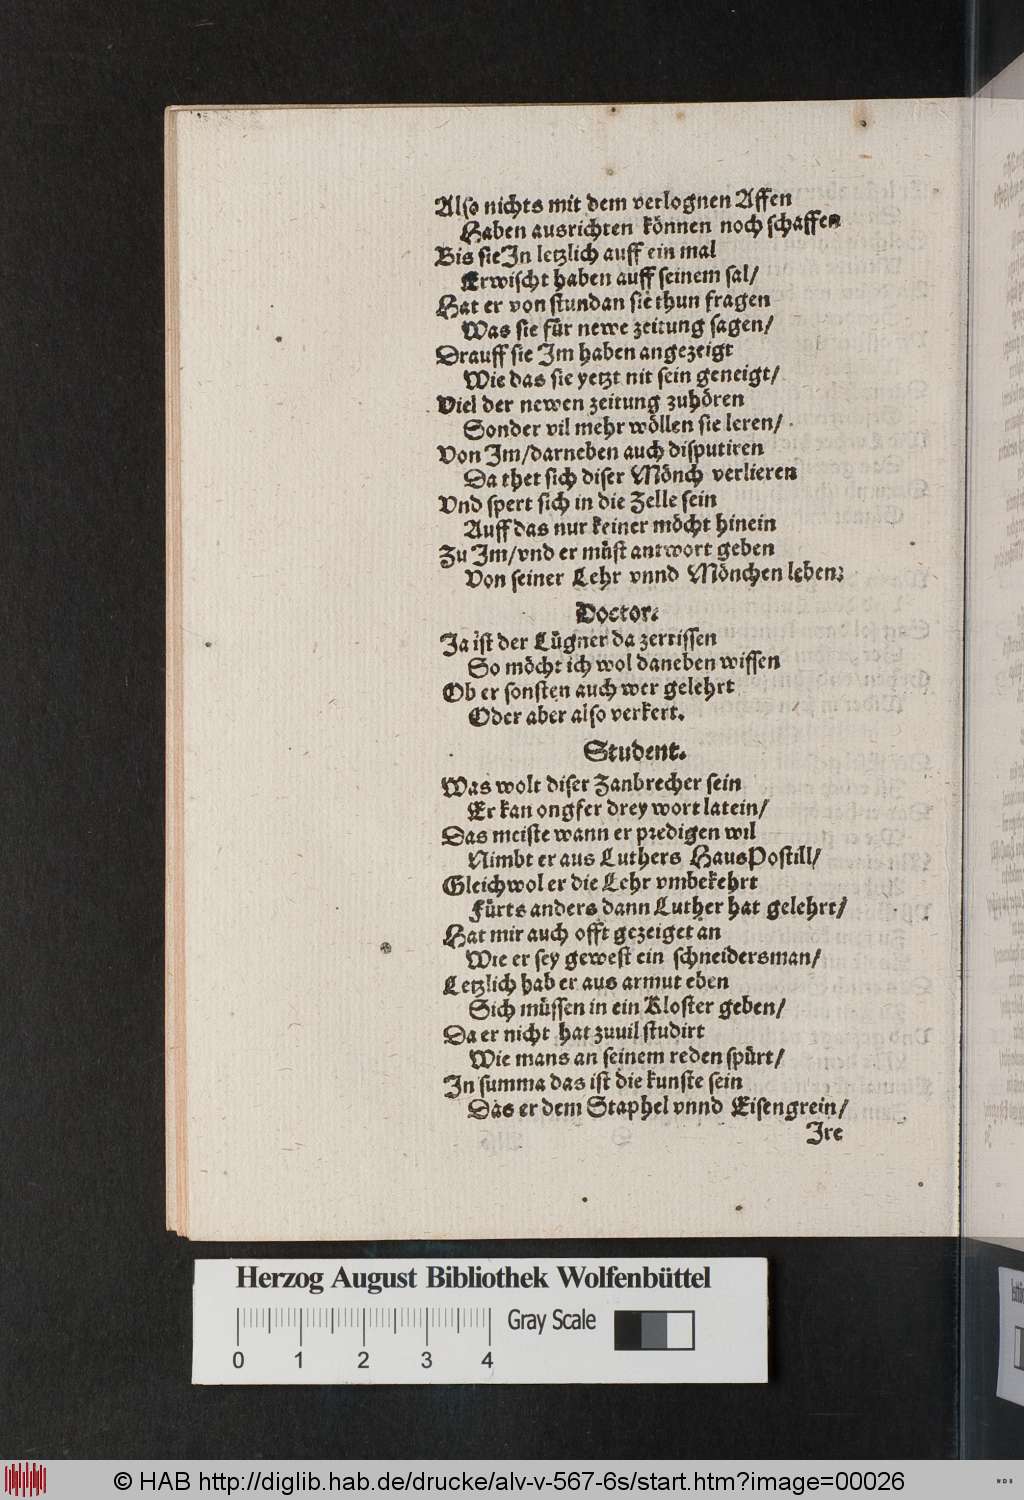 Also nichts mit dem verlognen Affen
Haben ausrichten können noch schaffen
Bis sie In letzlich auff ein mal
Erwischt haben auff seinem sal/
Hat er von stundan sie thun fragen
Was sie für newe zeitung sagen/
Drauff sie Im haben angezeigt
Wie das sie yetzt nit sein geneigt/
Viel der newen zeitung zuhören
Sonder vil mehr wöllen sie leren/
Von Im/darneben auch disputiren
Da thet sich diser Mönch verlieren
Vnd spert sich in die Zelle sein
Auff das nur keiner möcht hinein
Zu Im/vnd er müst antwort geben
Von seiner Lehr vnnd Mönchen leben:
Doctor.
Ja ist der Lügner da zerrissen
So möcht ich wol daneben wissen
Ob er sonsten auch wer gelehrt
Oder aber also verkert.
Student.
Was wolt diser Zanbrecher sein
Er kan ongfer drey wort latein/
Das meiste wann er predigen wil
Nimbt er aus Luthers HausPostill/
Gleichwol er die Lehr vmbekehrt
Fürts anders dann Luther hat gelehrt/
Hat mir auch offt gezeiget an
Wie er sey gewest ein schneidersman/
Letzlich hab er aus armut eben
Sich müssen in ein Kloster geben/
Da er nicht hat zuuil studirt
Wie mans an seinem reden spürt/
In summa das ist die kunste sein
Das er dem Staphel vnnd Eisengrein/
Ire
Herzog August Bibliothek Wolfenbüttel
Gray Scale
0 1 2 3 4
© HAB http://diglib.hab.de/drucke/alv-v-567-6s/start.htm?image=00026